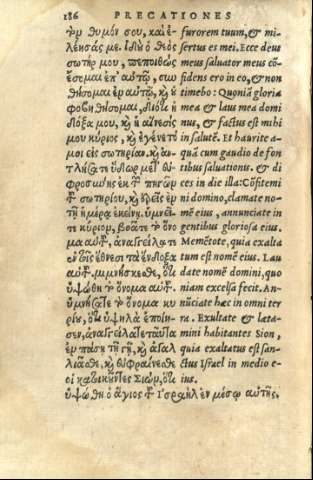 186 PRECATIONES
τὸν θυμόν σου, καὶ ἐ-
λέησάς με. ἰδοὺ ὁ θεὸς
σωτήρ μου, πεποιθὼς
ἔσομαι ἐπ' αὐτῷ, σω
θήσομαι ἐν αὐτῷ, καὶ οὐ
φοβηθήσομαι, διότι ἡ
δόξα μου, καὶ ἡ αἴνεσίς
μου κύριος, καὶ ἐγένετό
μοι εἰς σωτηρίαν. καὶ ἀν-
τλήσατε ὕδωρ μετ' εὐ
φροσύνης ἐκ τῶν πηγῶν
τοῦ σωτηρίου, καὶ ἐρεῖς ἐν
τῇ ἡμέρᾳ ἐκείνῃ. ὑμνεῖ-
τε κύριον, βοᾶτε τὸ ὄνο
μα αὐτοῦ, ἀναγγείλατε
ἐν τοῖς ἔθνεσι τὰ ἔνδοξα
αὐτοῦ. μιμνήσκεσθε, ὅτι
ὑψώθη τὸ ὄνομα αὐτοῦ.
ὑμνήσατε τὸ ὄνομα κυ
ρίου, ὅτι ὑψηλὰ ἐποίη-
σεν, ἀναγγείλατε ταῦτα
ἐν πάσῃ τῇ γῇ, καὶ ἀγαλ
λιᾶσθε, καὶ εὐφραίνεσθε
οἱ κατοικοῦντες Σιών, ὅτι
ὑψώθη ὁ ἅγιος τοῦ Ἰσραὴλ ἐν μέσῳ αὐτῆς.
furorem tuum, & mi-
sertus es mei. Ecce deus
meus saluator meus cō-
fidens ero in eo, & non
timebo: Quoniā gloria
mea & laus mea domi
nus, & factus est mihi
in salutē. Et haurite a-
quā cum gaudio de fon
tibus saluationis. & di
ces in die illa: Cōfitemi
ni domino, clamate no-
mē eius, annunciate in
gentibus gloriosa eius.
Memētote, quia exalta
tum est nomē eius. Lau
date nomē domini, quo
niam excelsa fecit. An-
nūciate hæc in omni ter
ra. Exultate & læta-
mini habitantes Sion,
quia exaltatus est san-
ctus Israel in medio e-
ius.